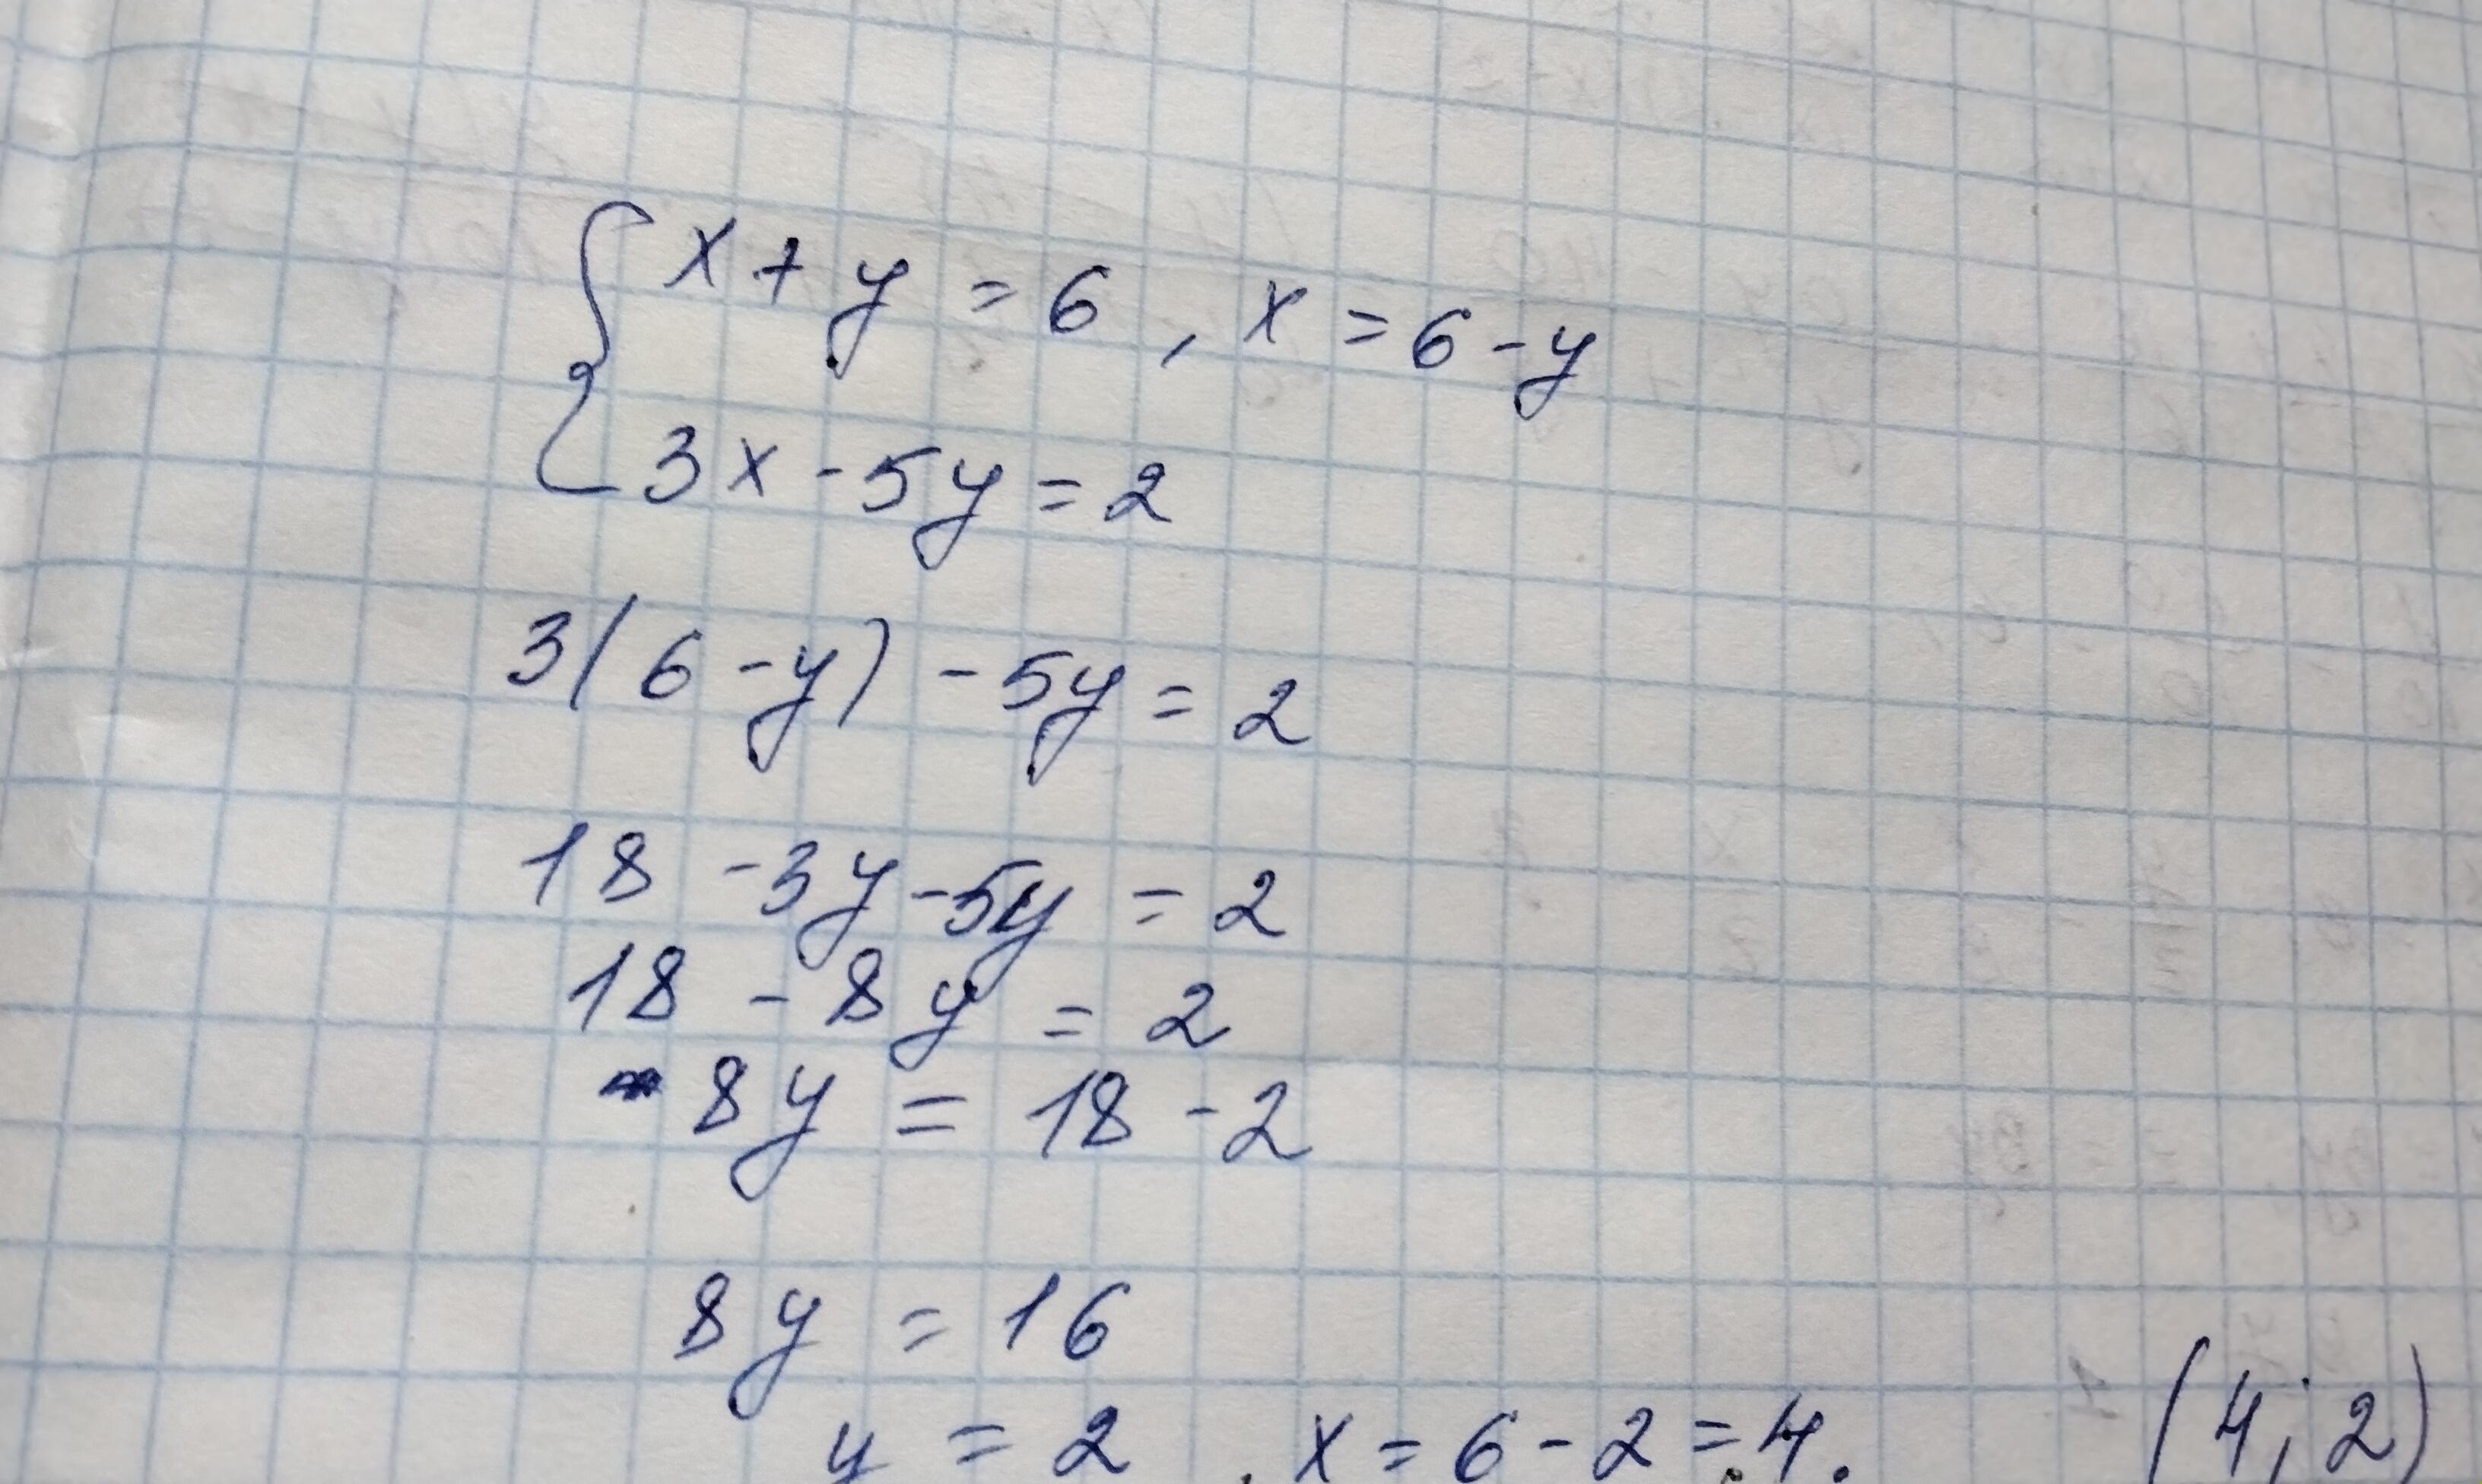 { x + y = 6 , x = 6 - y
3x - 5y = 2
3(6 - y) - 5y = 2
18 - 3y - 5y = 2
18 - 8y = 2
8y = 18 - 2
8y = 16
y = 2 , x = 6 - 2 = 4. (4; 2)